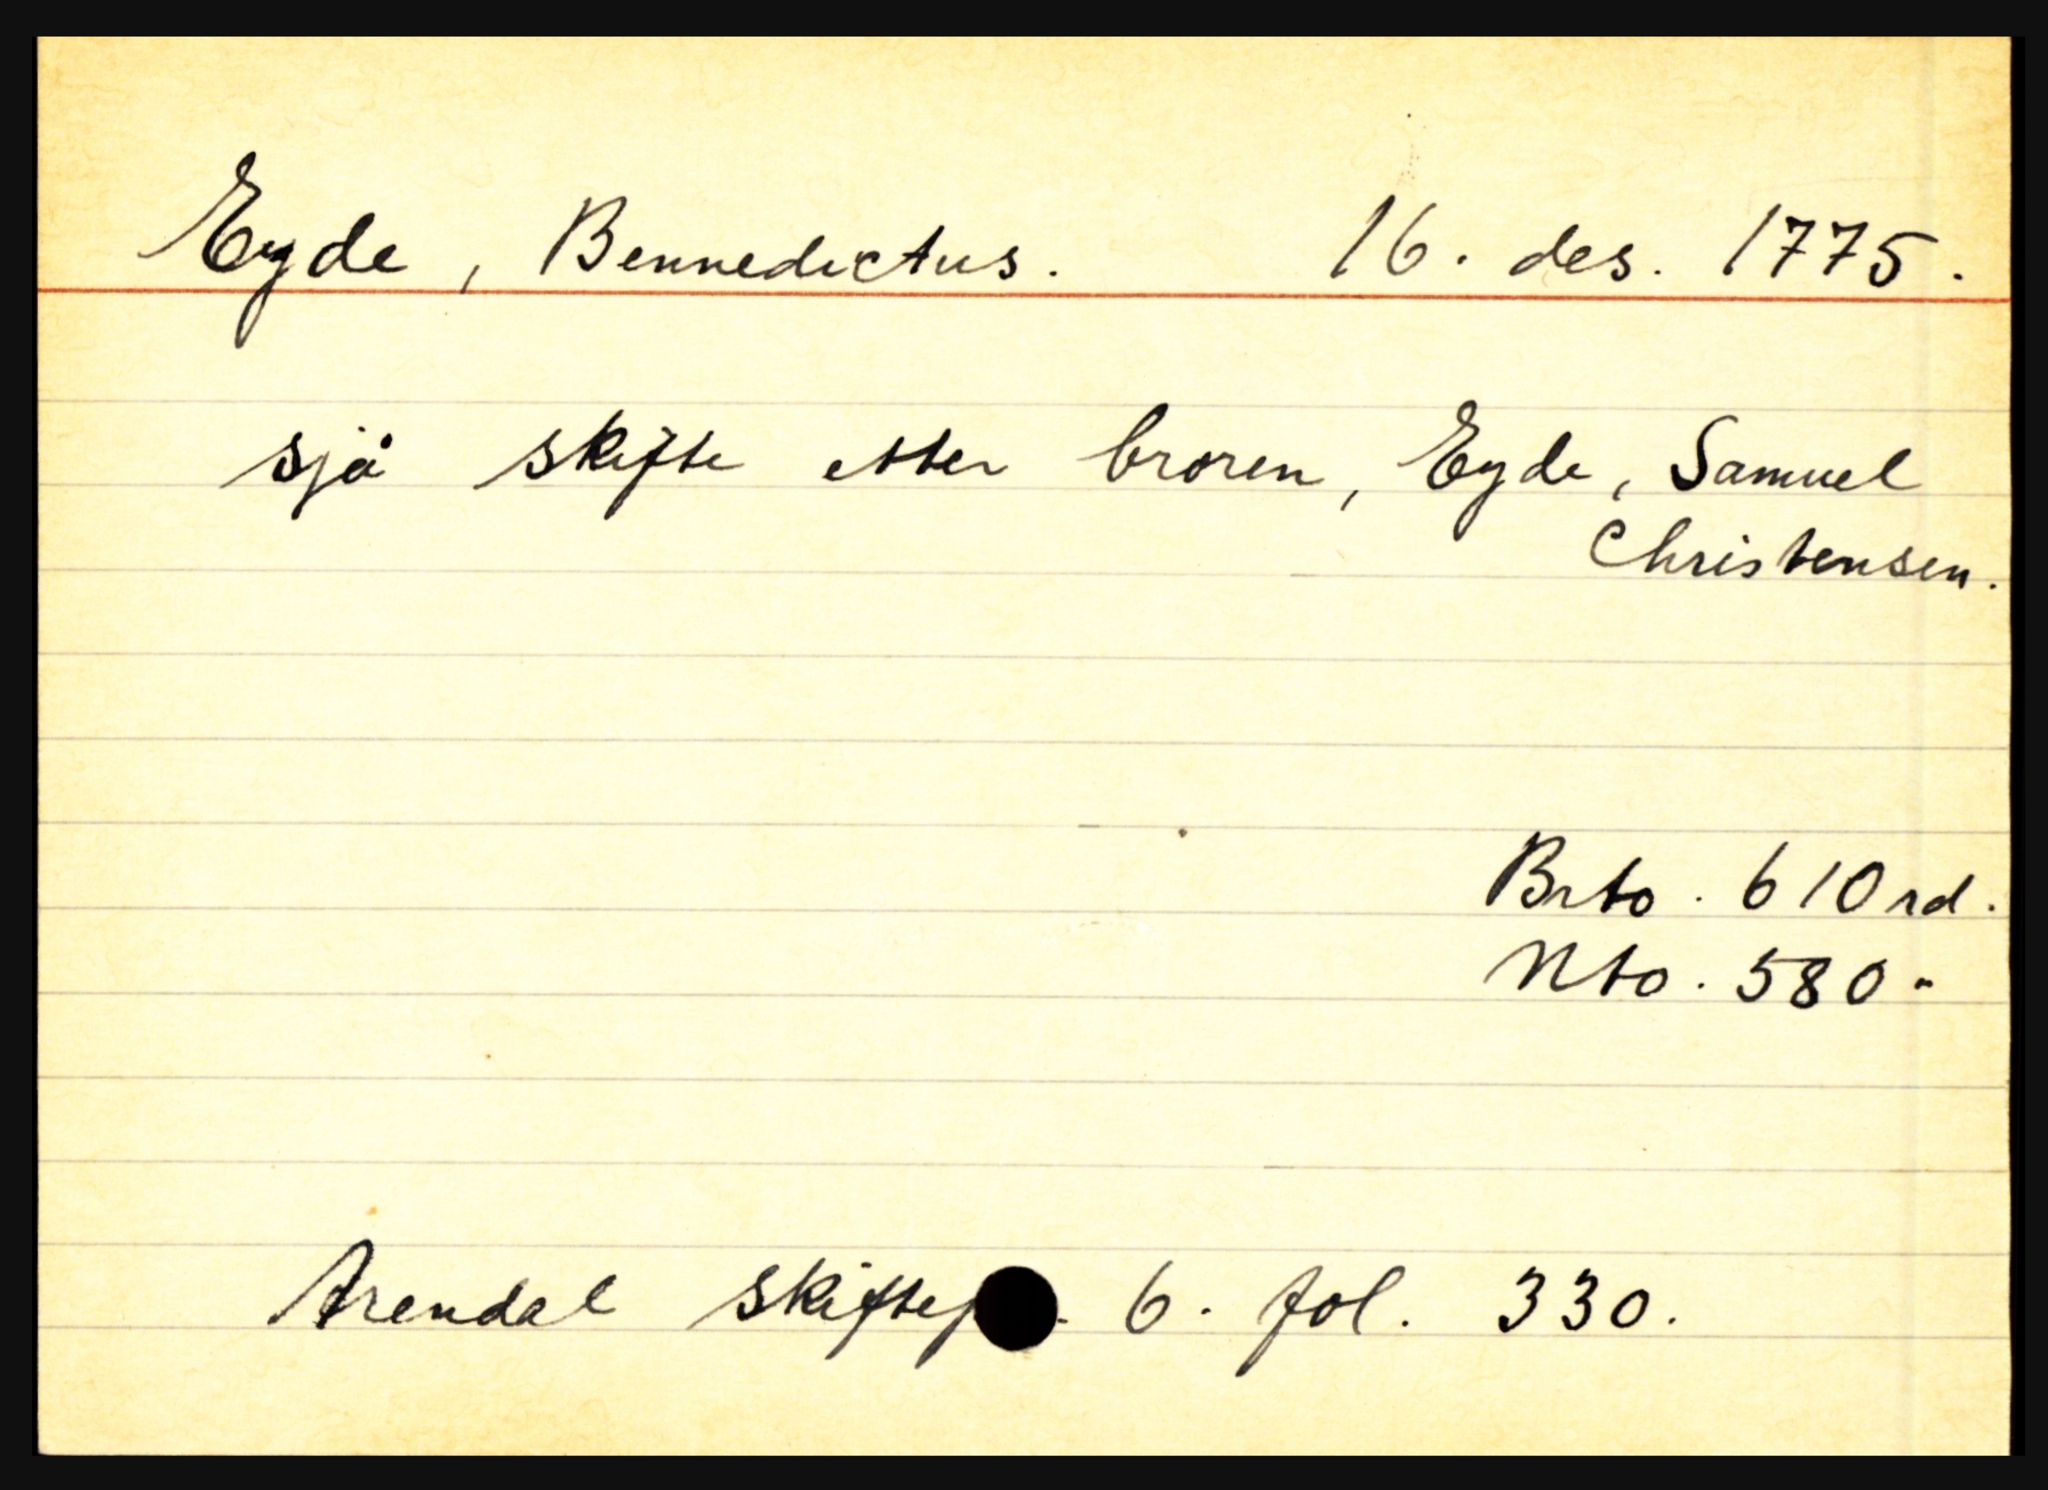 Eyde, Bennedictus. 16. des. 1775.
sjå skifte etter broren, Eyde, Samuel
Christensen.
Brto. 610 rd.
Nto. 580 -
Arendal 6. fol. 330.